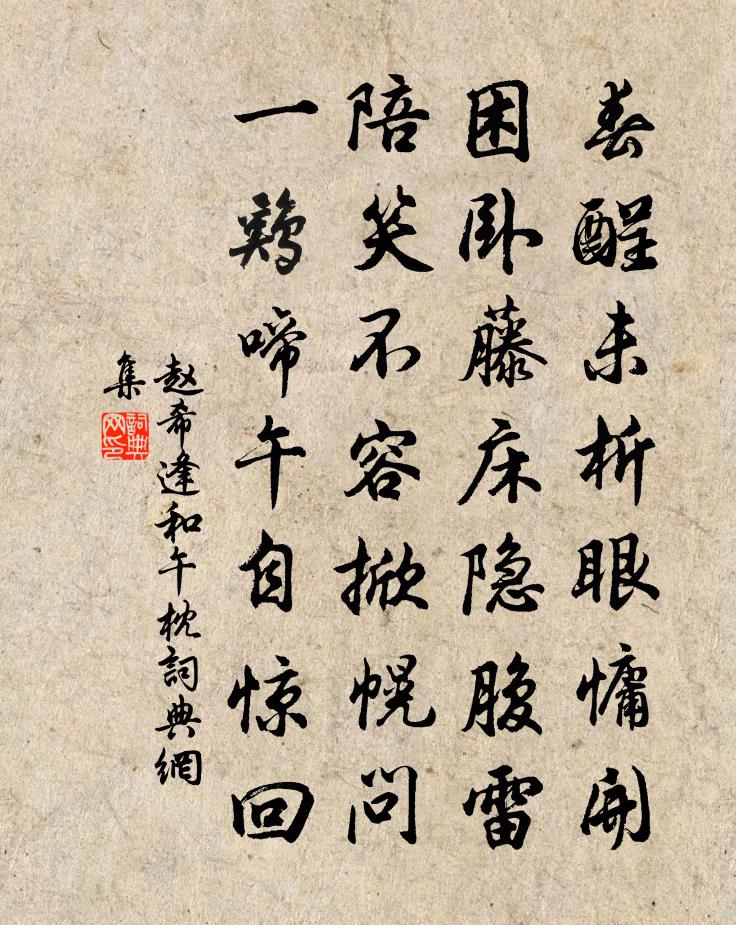 春酲未析眼慵開
困卧藤床隐腹雷
陪笑不容掀幌问
一鷄啼午自惊回
赵希逢和午枕詞典網
集
詞典网印